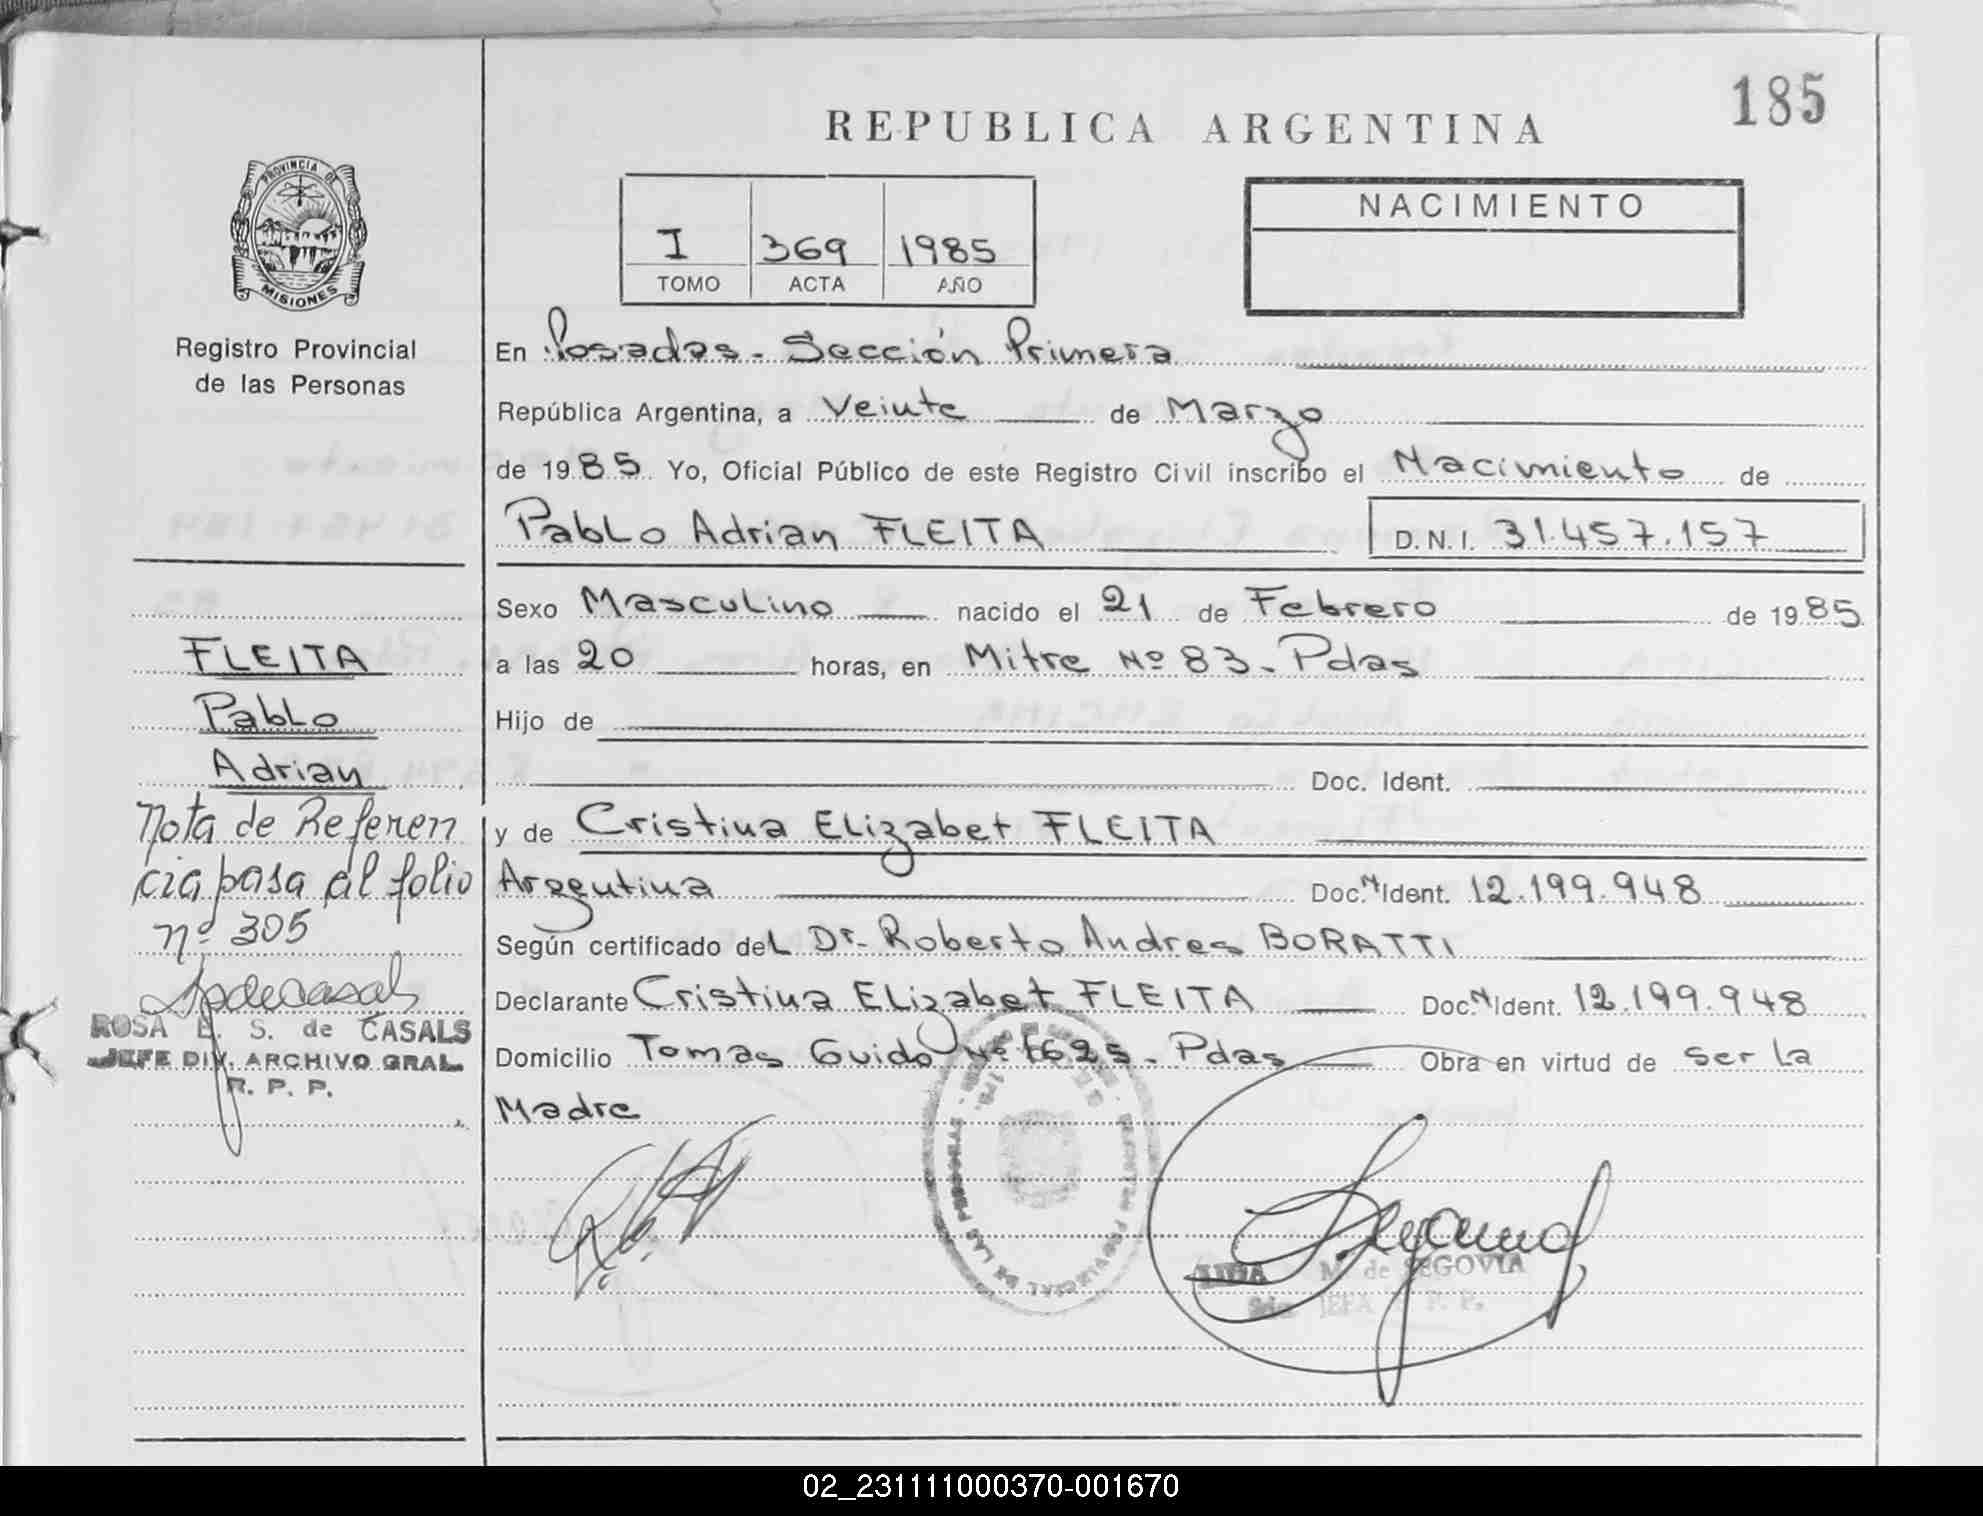 185
REPUBLICA ARGENTINA
PROVINCIA DE
MISIONES
Registro Provincial
de las Personas
I 369 1985
TOMO ACTA AÑO
NACIMIENTO
En Posadas - Sección Primera
República Argentina, a Veinte de Marzo
de 1985 Yo, Oficial Público de este Registro Civil inscribo el Nacimiento de
Pablo Adrian FLEITA D.N.I. 31.457.157
Sexo Masculino nacido el 21 de Febrero de 1985
a las 20 horas, en Mitre Nº 83 - Pdas
Hijo de
Doc. Ident.
y de Cristina Elizabet FLEITA
Argentina Doc. N Ident. 12.199.948
Según certificado del Dr. Roberto Andres BORATTI
Declarante Cristina Elizabet FLEITA Doc. N Ident. 12.199.948
Domicilio Tomas Guido Nº 1625 - Pdas Obra en virtud de ser la
Madre
FLEITA
Pablo
Adrian
Nota de Referen
cia pasa al folio
nº 305
ROSA E. S. de CASALS
JEFE DIV. ARCHIVO GRAL.
R. P. P.
M. de SEGOVIA
JEFA R. P. P.
02_231111000370-001670